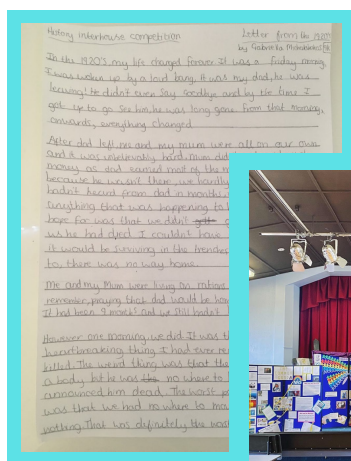 History interhouse competition
Letter from the 1920s
by
In the 1920's my life changed forever. It was a friday morning,
I was woken up by a loud bang. It was my dad, he was
leaving! He didn't even say goodbye and by the time I
got up to go see him, he was long gone. From that morning,
onwards, everything changed
After dad left me and my mum were all on our own
and it was unbelievably hard. Mum did
money as dad earned most of the m
because he wasn't there, we hardly
hadn't heard from dad in months
anything that was happening to
hope for was that we didn't
us he had died. I couldn't
it would be surviving in the trenches
to, there was no way home
Me and my Mum were living on rations
remember, praying that dad would be hom
It had been 9 months and we still hadn't
However one morning, we did. It was th
heartbreaking thing I had ever re
killed. The weird thing was that the
a body but he was no where to
announced him dead. The worst p
was that we had no where to
nothing. That was definitely the wors